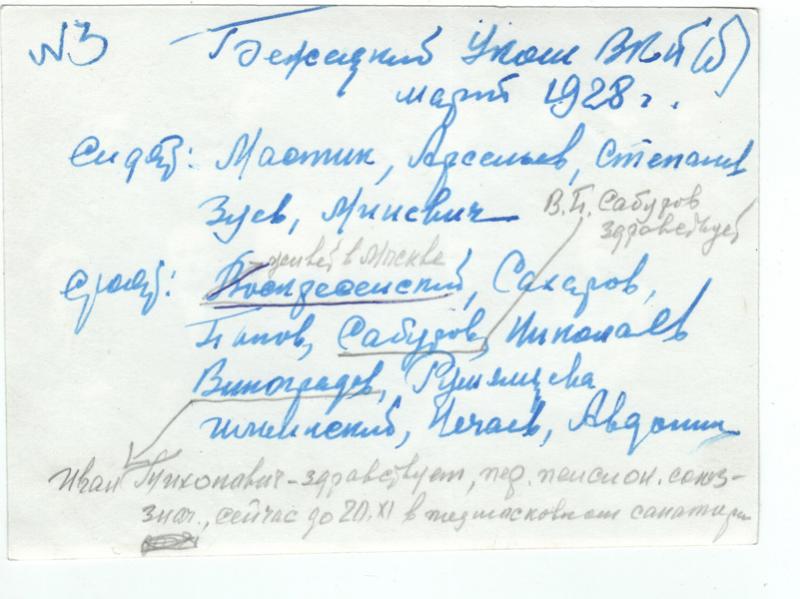 №3 Бежецкий Уком ВКП(б)
март 1928 г.
Сидят: Мастик, Арсеньев, Степанов
Зуев, Минсвич
В.П. Сабуров
здравствует
живет в Москве
стоят: Воскресенский, Сахаров,
Попов, Сабуров, Николаев
Виноградов, Румянцева
Нечаев, Авдонин
Иван Тихонович - здравствует, пер. пенсион. союз-
знач., сейчас до 20.XI в подмосковном санатории